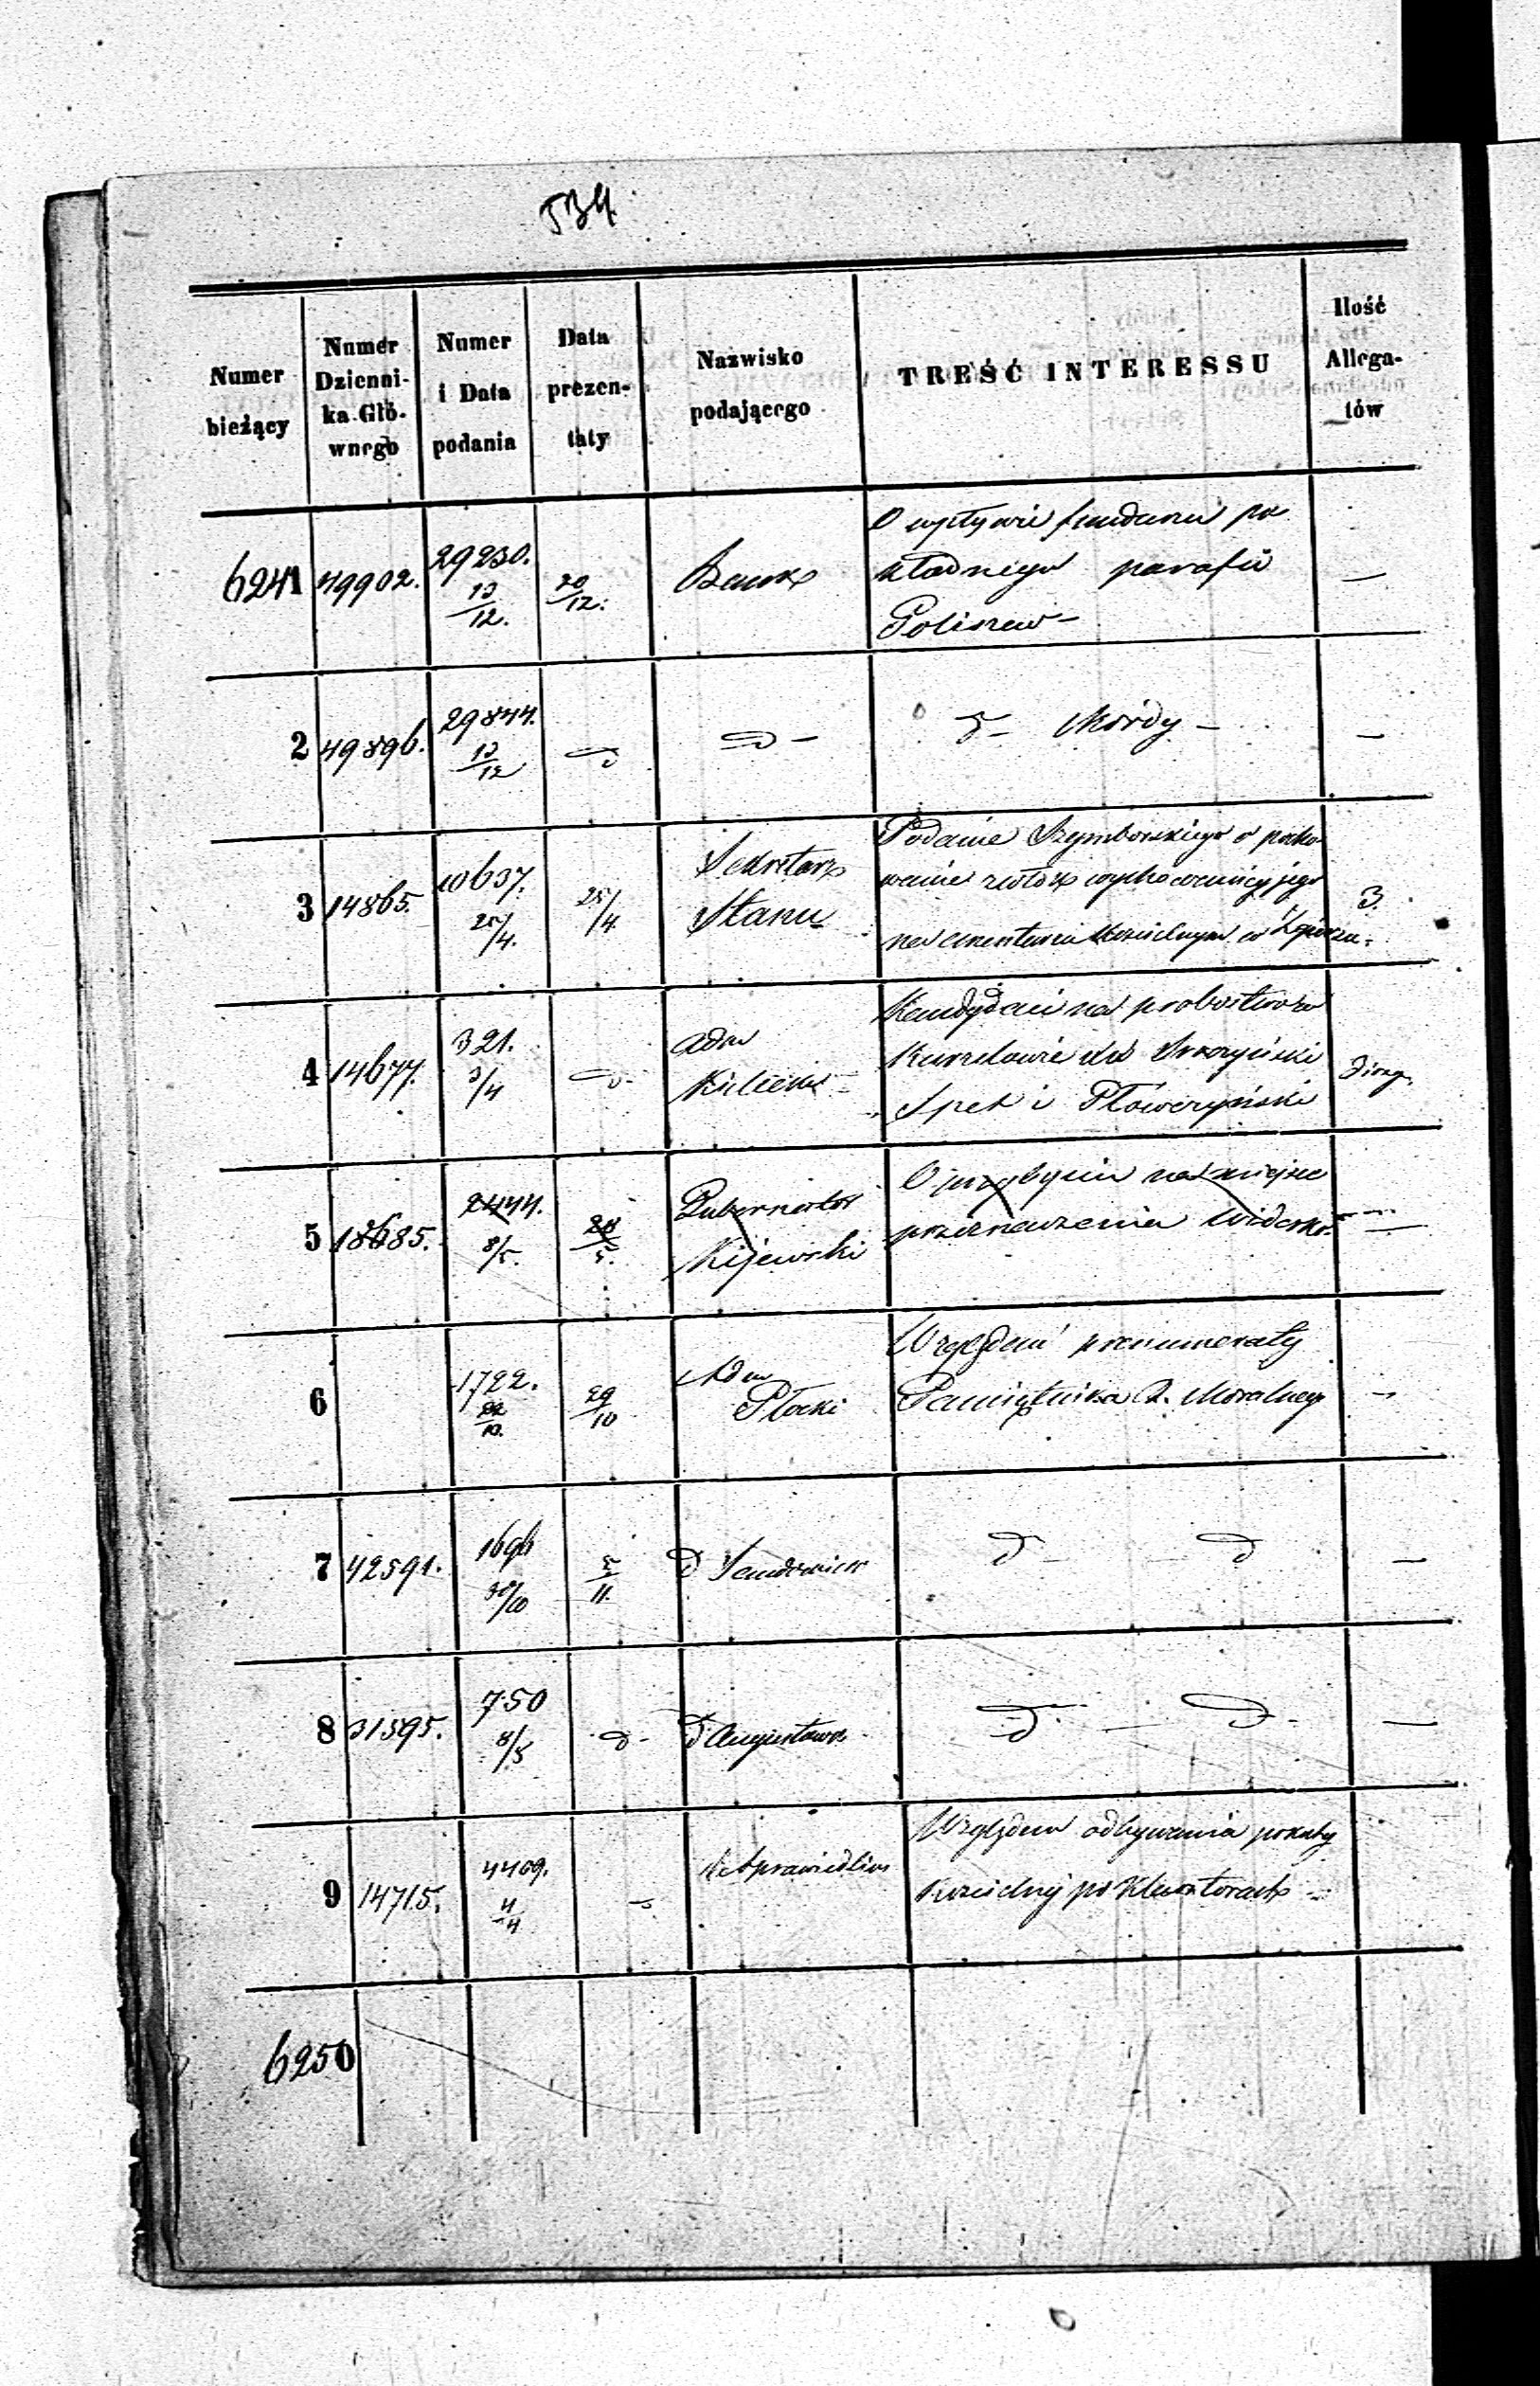 534
Numer bieżący
Numer Dzienni- ka Głó- wnego
Numer i Data podania
Data prezen- taty
Nazwisko podającego
TREŚĆ INTERESSU
Ilość Allega- tów
6241 49902. 29230. 13/12. 20/12. Bank
O wpływie funduszu po
kładnego parafii
—
2 49896. 29844. 13/12 D D – D – Mordy – —
3 14865. 10637. 25/4. 25/4 Sekretarz Stanu
Podanie Szymborskiego o pocho
wanie zwłok wychowanicy jego
na cmentarzu kościelnym w
3.
4 14677. 321. 3/4 D- Adm Kielecki
Kandydaci na probostwo w
Kurzelowie
i
5 18685. 2444. 8/5. 5. Gubernator Kijewski
O przybyciu na miejsce
przeznaczenia
—
6 1722. 10. 29/10 Adm Płocki
Względem prenumeraty
Pamiętnika R. Moralnego
-
7 42591. 1696 30/10 5/11. D Sandomier D – D —
8 31595. 750 8/5 D- D Augustows D – D – —
9 14715. 4409. 4/4 K Sprawiedliw
Względem odbywania pokuty
Kościelnej po Klasztorach –
6250